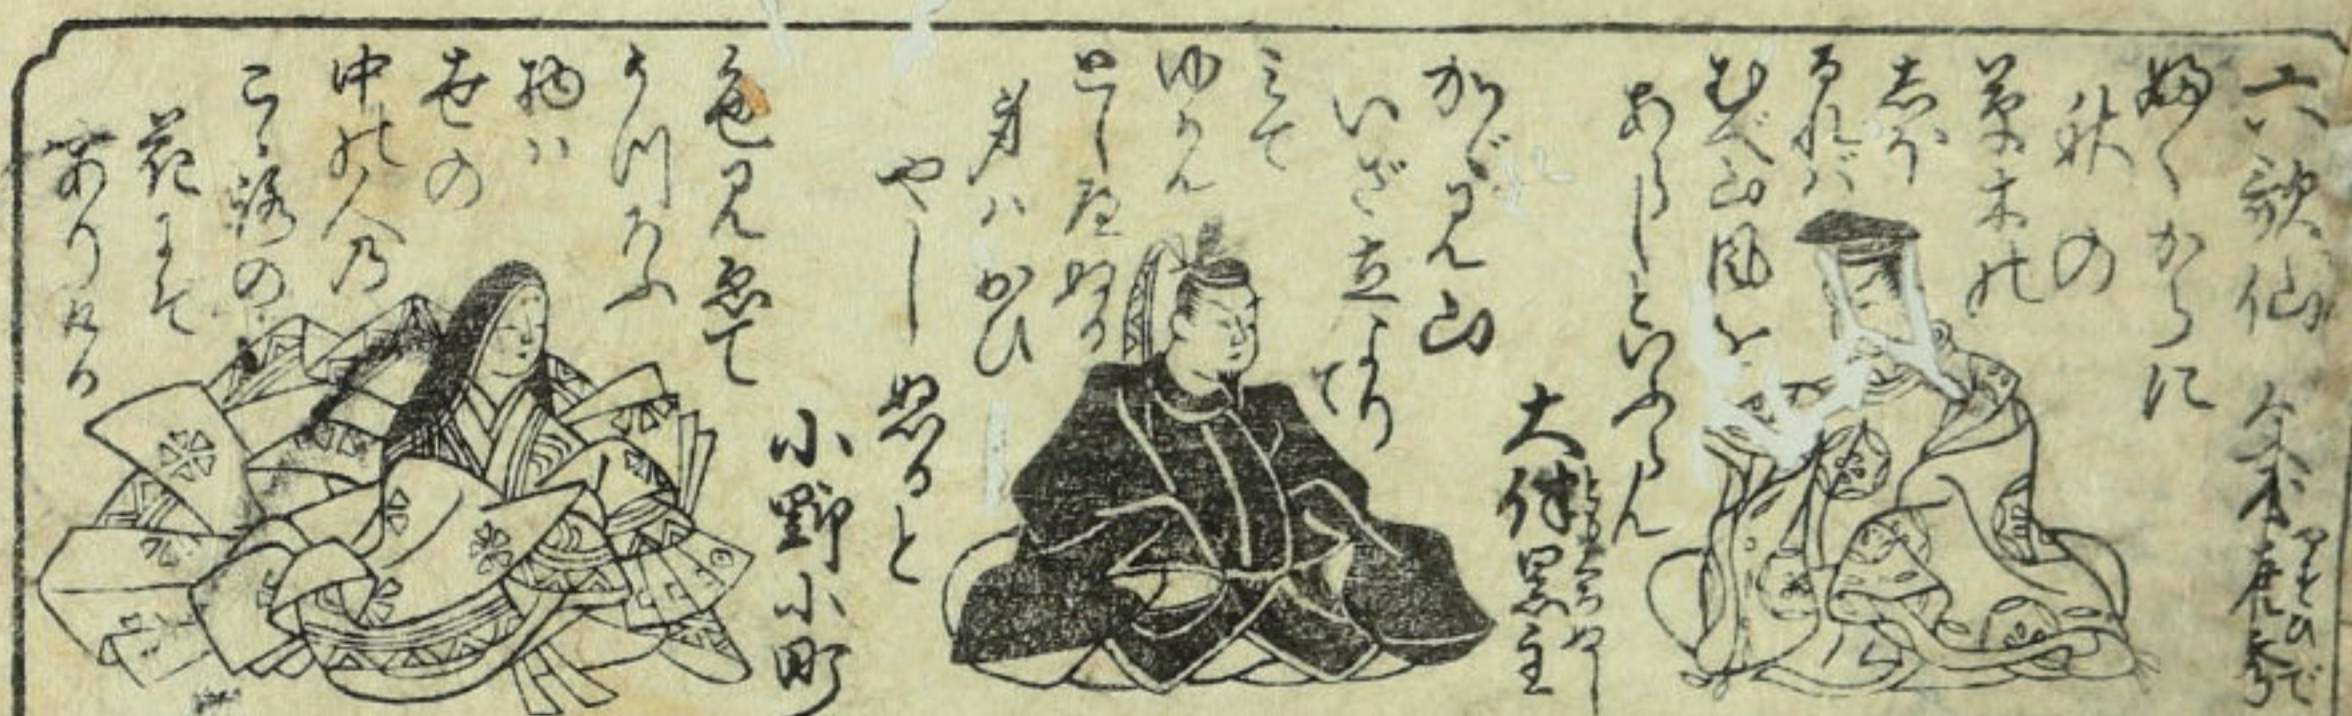 六歌仙 文屋康秀
やすひで
ふくからに
秋の
草木の
志ほ
るれバ
むべ山風を
あらしといふらん
大伴黒主
ともくろぬし
かゞみ山
いざ立より
て
みて
ゆかん
としへぬる
身ハおひ
やしぬると
小野小町
色見えて
うつろふ
物ハ
世の
中の人の
こゝろの
花にぞ
ありける